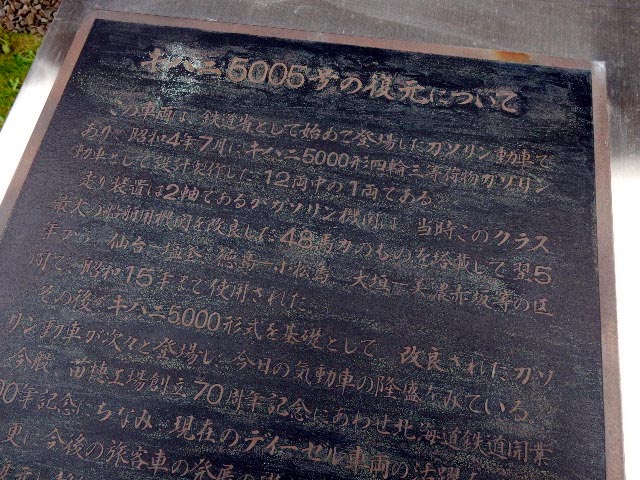 キハニ5005号の復元について
この車両は、鉄道省として始めて登場したガソリン動車で
あり、昭和4年7月にキハニ5000形四輪三等荷物ガソリン
動車として設計製作した12両中の1両である。
走り装置は2軸であるがガソリン機関は、当時このクラス
最大の船舶用機関を改良した48馬力のものを搭載して翌5
年から、仙台—塩釜、徳島—小松島、大垣—美濃赤坂等の区
間で、昭和15年まで使用された。
その後、キハニ5000形式を基礎として、改良されたガソ
リン動車が次々と登場し、今日の気動車の隆盛をみている。
今般、苗穂工場創立70周年記念にあわせ北海道鉄道開業
00年記念にちなみ、現在のディーゼル車両の活躍
更に今後の旅客車の発展の